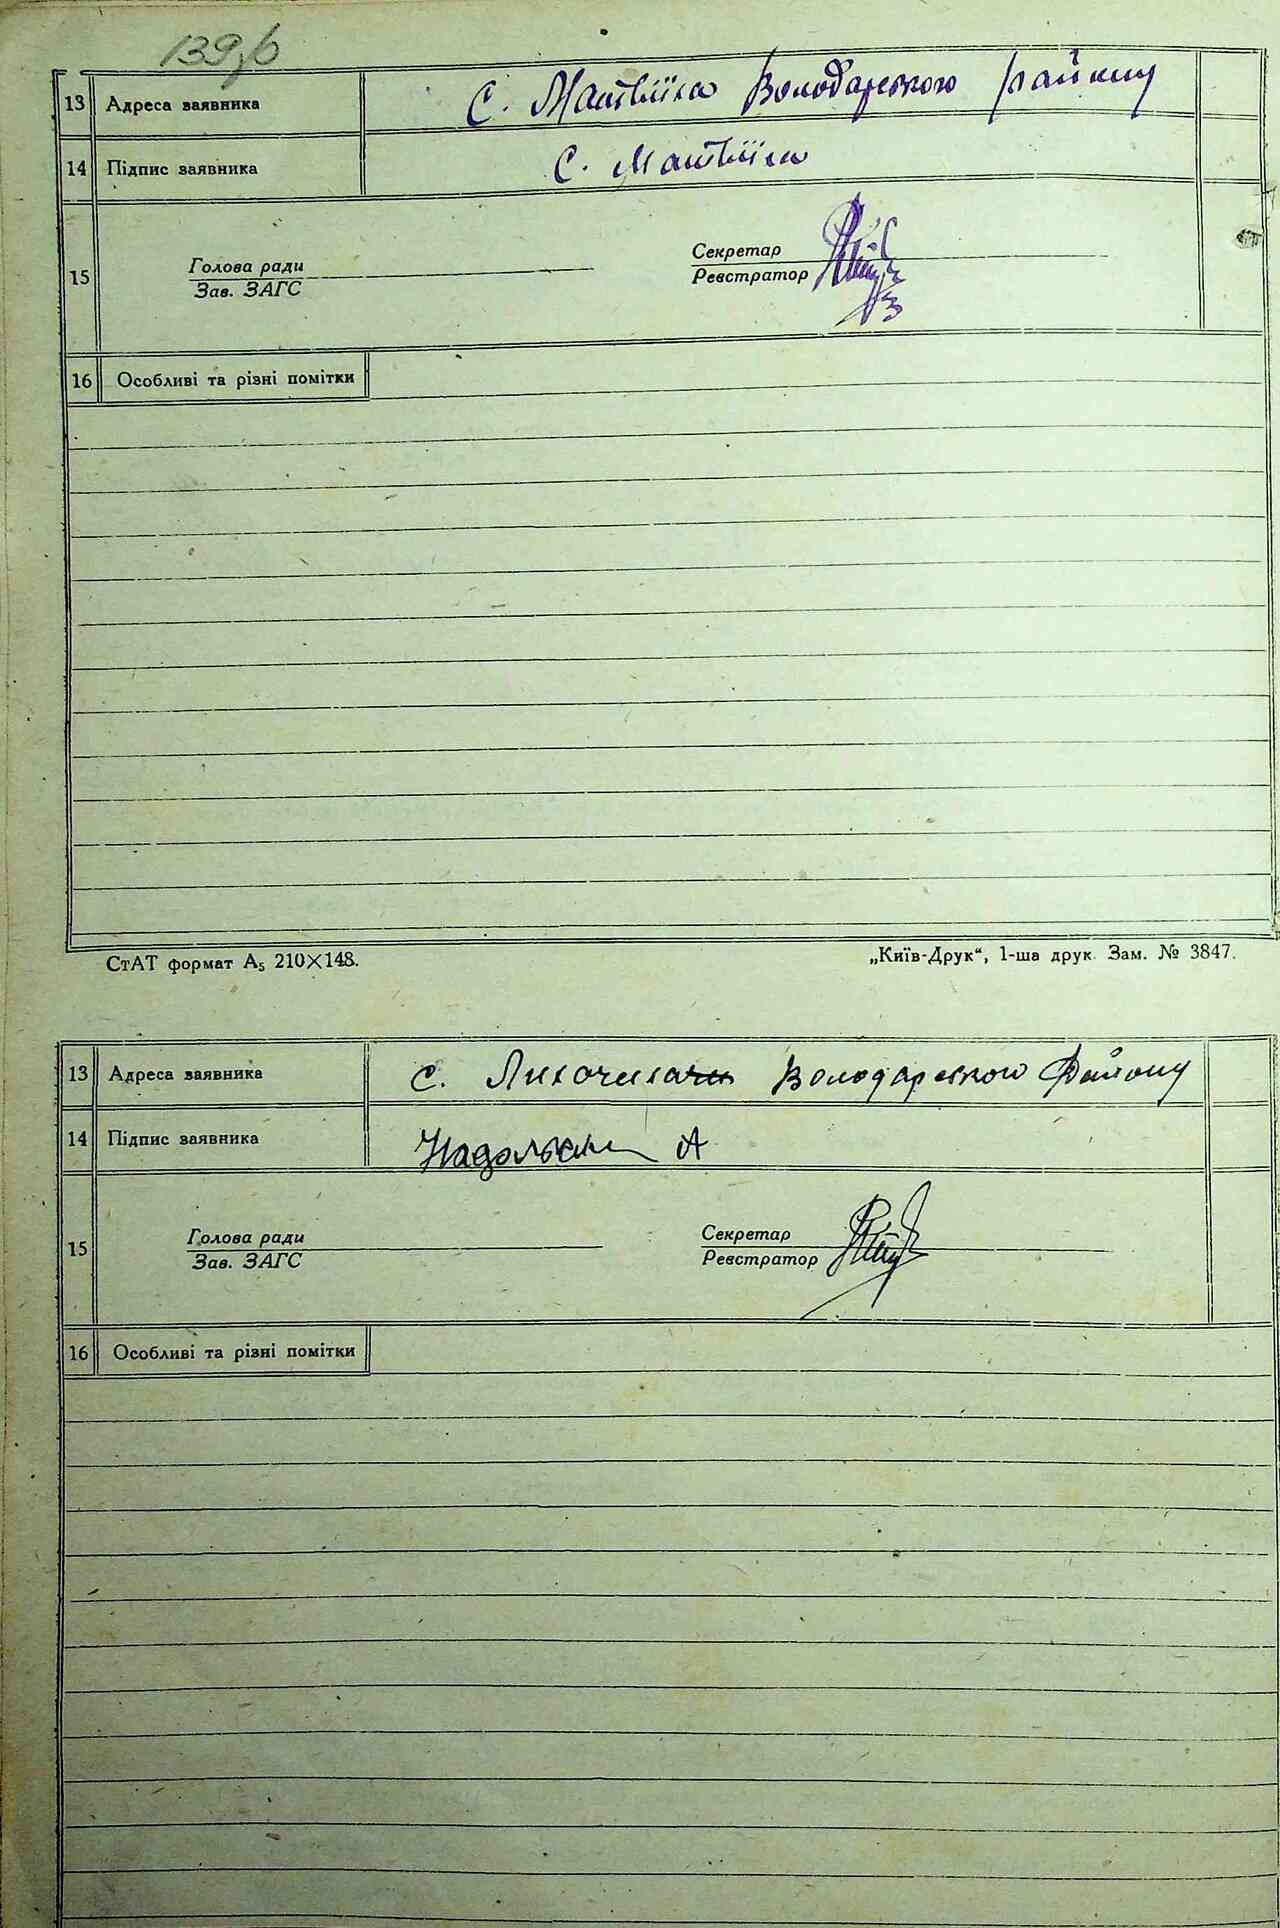 139,б
13 Адреса заявника с. Матвіїха Володарського району
14 Підпис заявника с. Матвіїха
Секретар
Голова ради
Реєстратор
15
Зав. ЗАГС
16 Особливі та різні помітки
СтАТ формат А5 210×148. „Київ-Друк“, 1-ша друк. Зам. № 3847.
13 Адреса заявника с. Володарського Району
14 Підпис заявника А
Секретар
Голова ради
15
Реєстратор
Зав. ЗАГС
16 Особливі та різні помітки